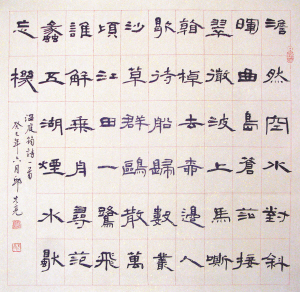 澹然空水對斜
暉曲島蒼茫接
翠微波上馬嘶
看棹去柳邊人
歇待船歸數叢
沙草群鷗散萬
頃江田一鷺飛
誰解乘舟尋范
蠡五湖煙水獨
忘機
温庭筠詩一首
癸巳年六月